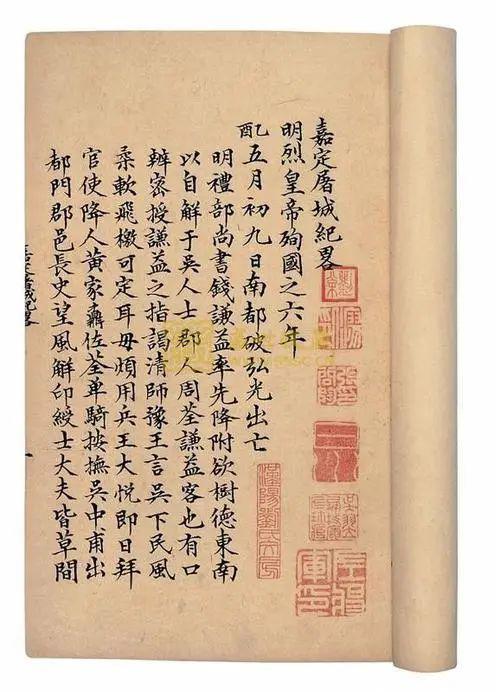 嘉定屠城紀畧
明烈皇帝殉國之六年
乙酉五月初九日南都破弘光出亡
明禮部尚書錢謙益率先降附欲樹德東南
以自解于吳人士郡人周荃謙益客也有口
辨密授謙益之指謁清師豫王言吳下民風
柔軟飛檄可定耳毋煩用兵王大悅即日拜
官使降人黃家鼒佐荃单騎按撫吳中甫出
都門郡邑長史望風解印綬士大夫皆草間
嘉定屠城紀畧
一